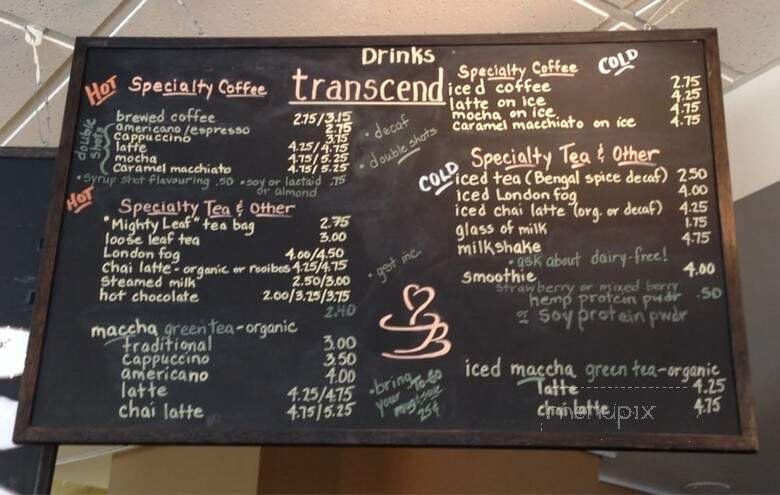 Drinks
transcend
HOT Specialty Coffee
brewed coffee 2.75/3.15
americano/espresso 2.75
cappuccino 3.75
latte 4.25/4.75
mocha 4.75/5.25
caramel macchiato 4.75/5.25
double shots
• syrup shot flavouring .50 • soy or lactaid .75
or almond
• decaf
• double shots
HOT
Specialty Tea & Other
"Mighty Leaf" tea bag 2.75
loose leaf tea 3.00
London fog 4.00/4.50
chai latte - organic or rooibos 4.25/4.75
steamed milk 2.50/3.00
hot chocolate 2.00/3.25/3.75
2.40
• gst inc.
maccha green tea - organic
traditional 3.00
cappuccino 3.50
americano 4.00
latte 4.25/4.75
chai latte 4.75/5.25
• bring your To-Go
mug & save
25¢
Specialty Coffee COLD
iced coffee 2.75
latte on ice 4.25
mocha on ice 4.75
caramel macchiato on ice 4.75
Specialty Tea & Other
COLD
iced tea (Bengal spice decaf) 2.50
iced London fog 4.00
iced chai latte (org. or decaf) 4.25
glass of milk 1.75
milkshake 4.75
• ask about dairy-free!
smoothie 4.00
strawberry or mixed berry
hemp protein pwdr .50
or soy protein pwdr
iced maccha green tea - organic
latte 4.25
chai latte 4.75
menupix